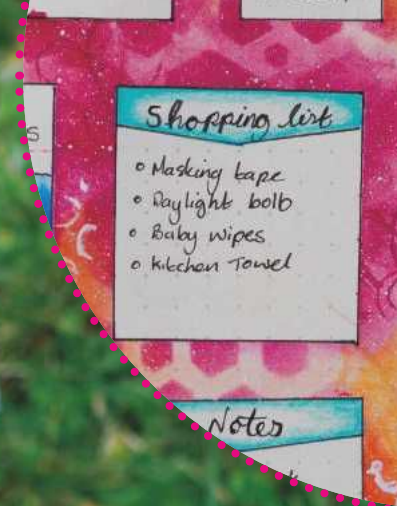 S
Shopping list
Masking tape
Daylight bolb
Baby wipes
Kitchen Towel
Notes